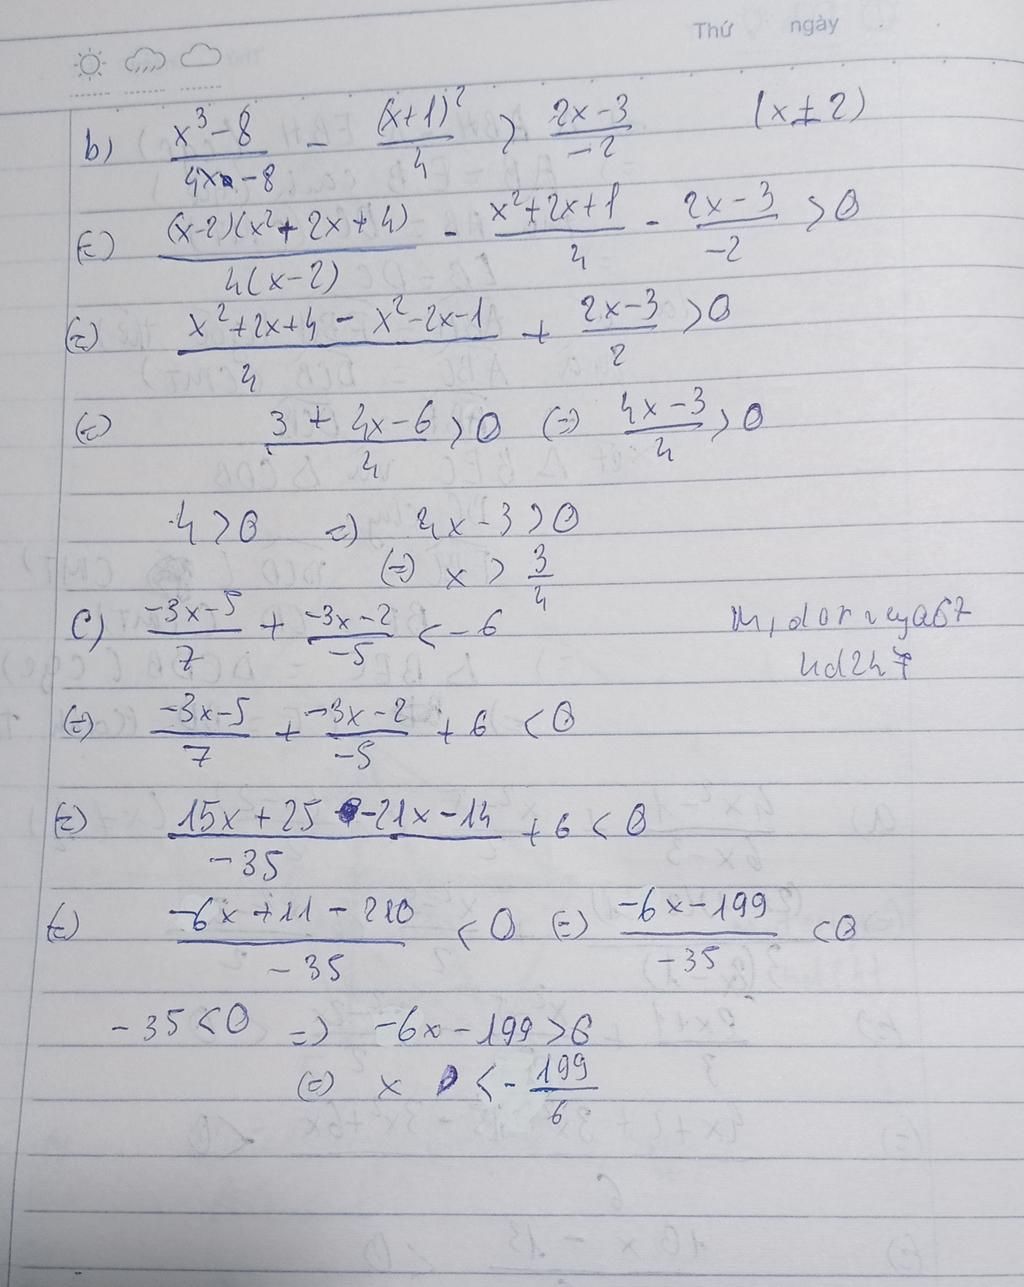 Thứ ngày
b) (x³-8)/(4x-8) - (x+1)²/4 > (2x-3)/-2 (x ± 2)
(=) (x-2)(x²+2x+4)/4(x-2) - (x²+2x+1)/4 - (2x-3)/-2 > 0
(=) (x²+2x+4-x²-2x-1)/4 + (2x-3)/2 > 0
(=) (3+4x-6)/4 > 0 (=) (4x-3)/4 > 0
4 > 0 =) 4x-3 > 0
(=) x > 3/4
c) (-3x-5)/7 + (-3x-2)/-5 < -6
(=) (-3x-5)/7 + (-3x-2)/-5 + 6 < 0
(=) (15x+25-21x-14)/-35 + 6 < 0
(=) (-6x+11-210)/-35 < 0 (=) (-6x-199)/-35 < 0
-35 < 0 =) -6x-199 > 0
(=) x < -199/6